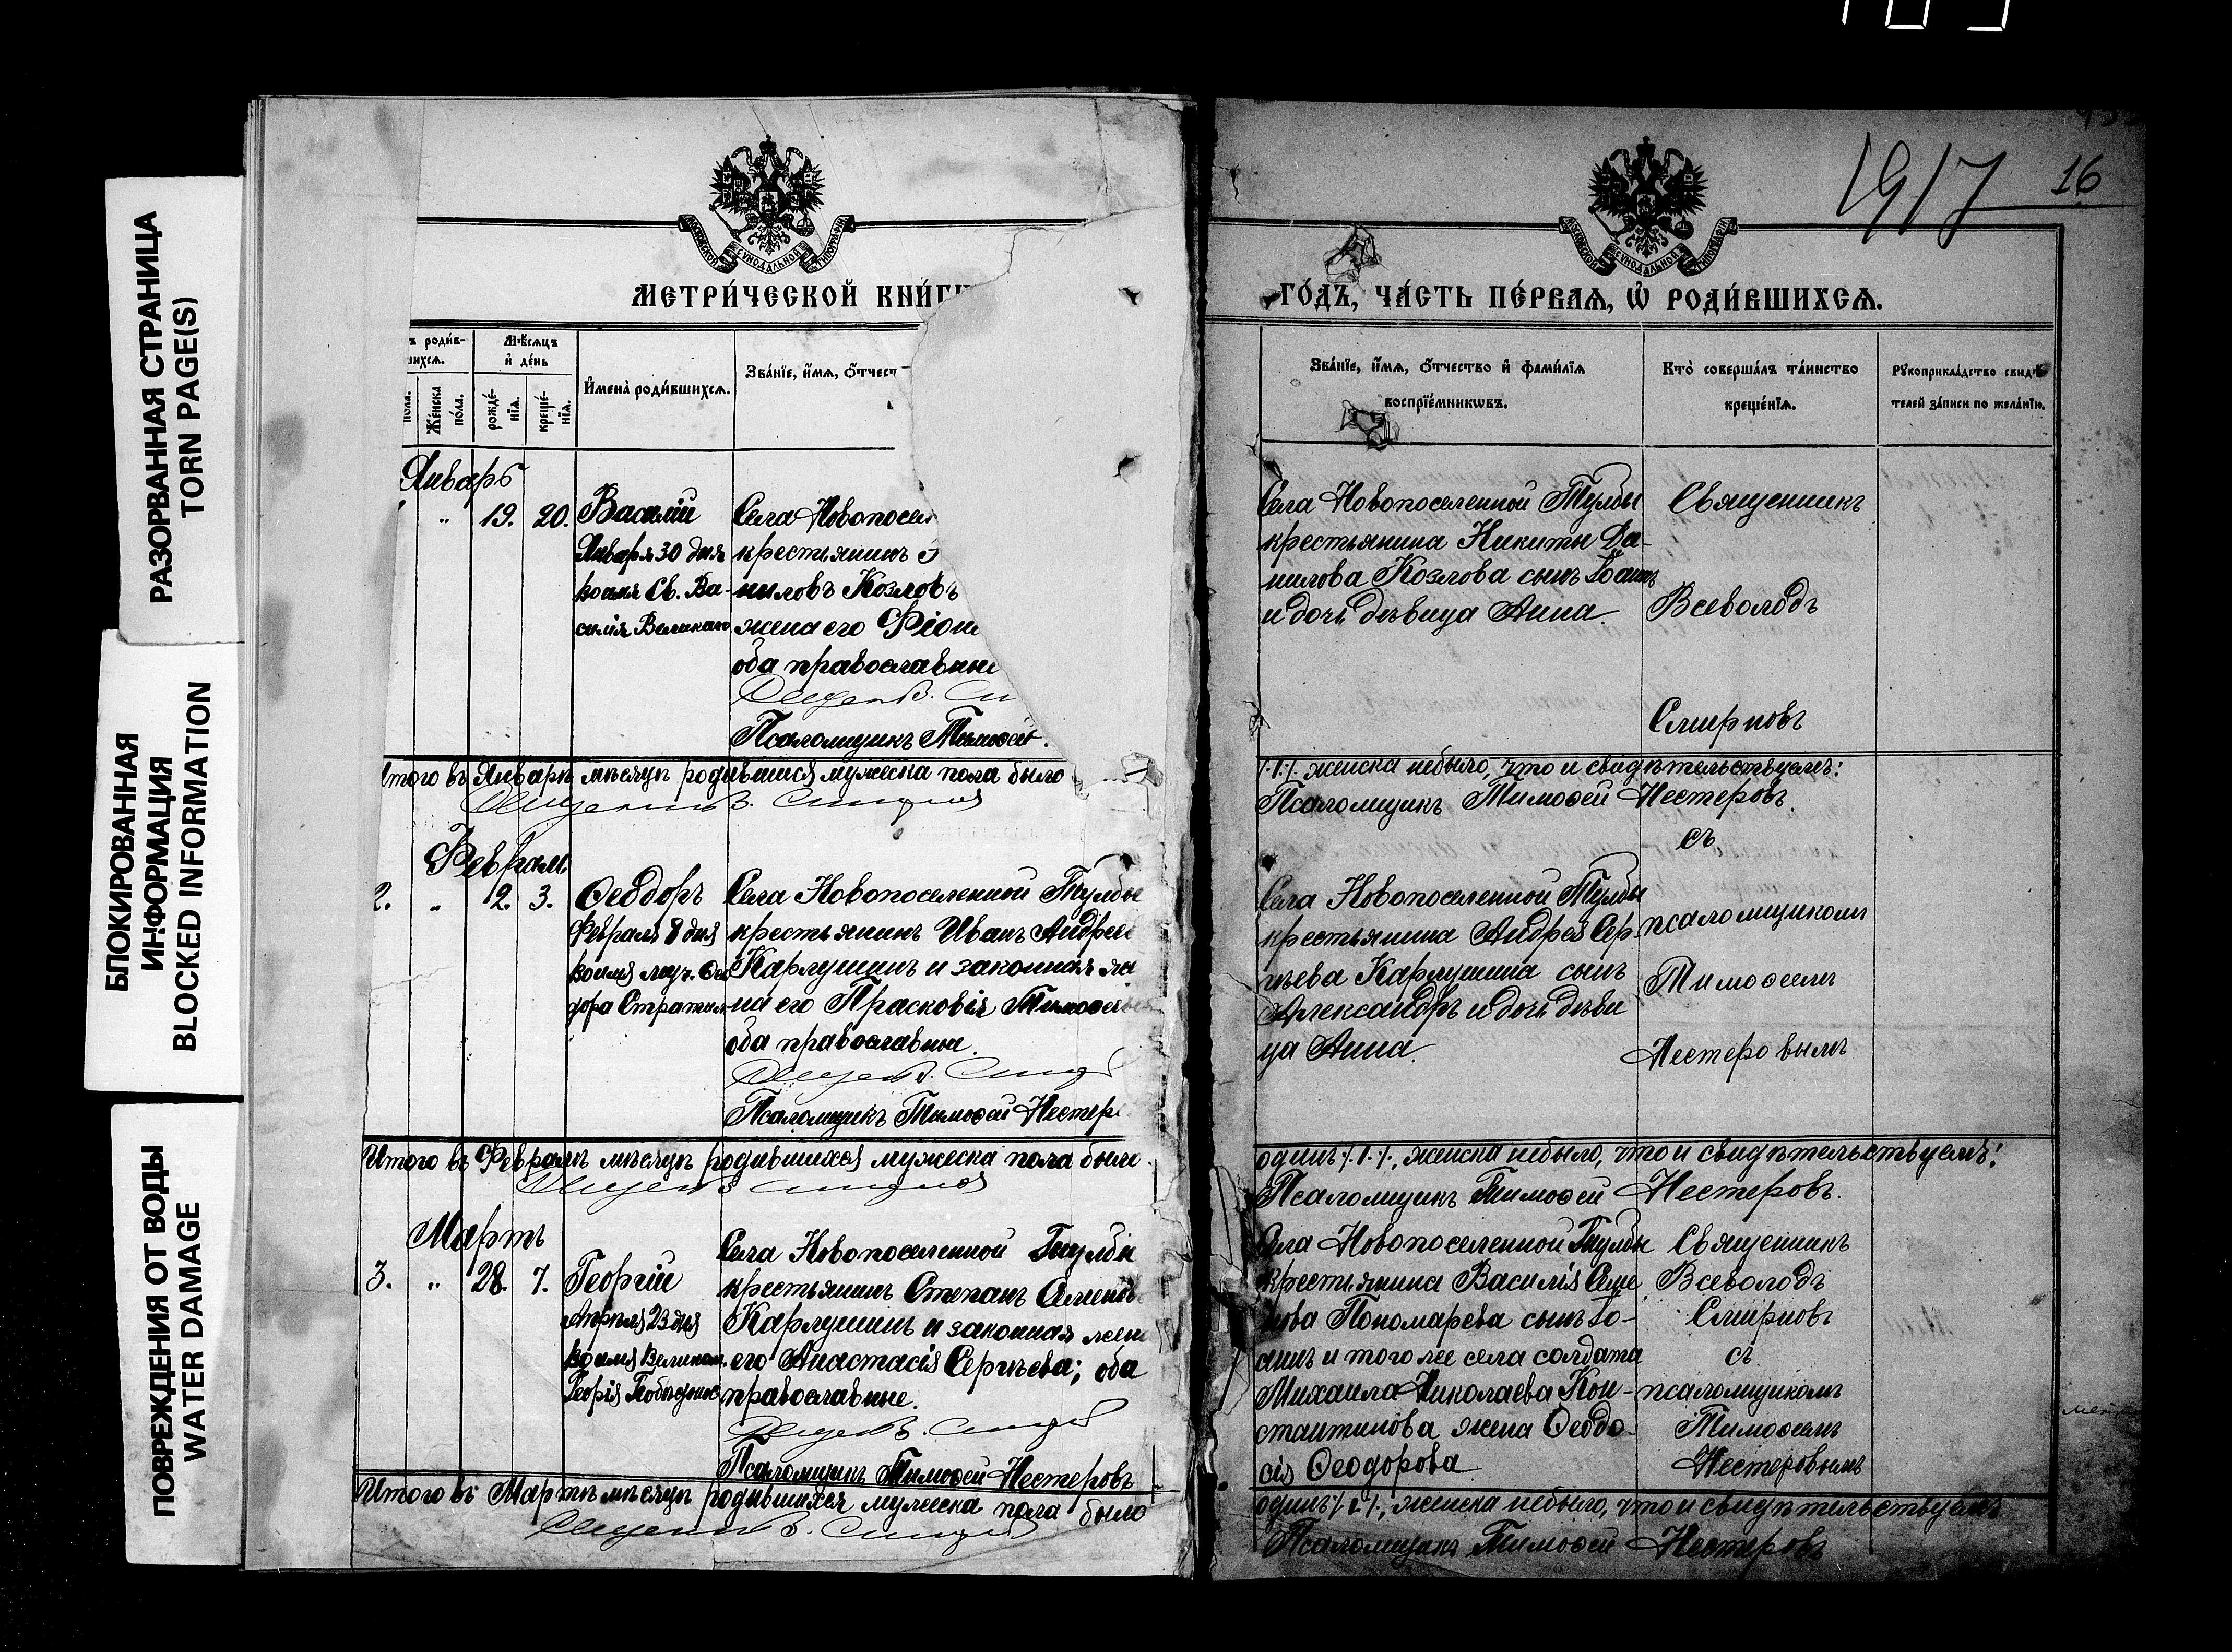 РАЗОРВАННАЯ СТРАНИЦА
TORN PAGE(S)
БЛОКИРОВАННАЯ
ИНФОРМАЦИЯ
BLOCKED INFORMATION
ПОВРЕЖДЕНИЯ ОТ ВОДЫ
WATER DAMAGE
МОСКОВСКОЙ СУНОДАЛЬНОЙ ТИПОГРАФІИ
МЕТРИ́ЧЕСКОЙ КНИ́Г
ъ роди́в-
шихсѧ.
пола.
Же́нска пола.
Мѣ́сѧцъ
и҆ де́нь
рожде́-
нїѧ.
креще́-
нїѧ.
И҆мена̀ роди́вшихсѧ.
Зва́нїе, и҆́мѧ, ѻ҆́тчест
Январь
" 19. 20. Василій
Января 30 дня
во имя Св. Ва-
силія Великаго
Села Новопосел
крестьянинъ
ниловъ Козловъ
жена его Фіон
оба православные
Псаломщикъ Тимоѳей
Итого въ Январѣ мѣсяцѣ родившихся мужеска пола было
Февраль
2. " 2. 3. Ѳеодоръ
Февраля 8 дня
во имя муч. Ѳео
дора Стратил
Села Новопоселенной Тулбы
крестьянинъ Иванъ Андрее
Карлушинъ и законная же
на его Прасковія Тимоѳеева
оба православные.
Псаломщикъ Тимоѳей Нестер
Итого въ Февралѣ мѣсяцѣ родившихся мужеска пола было
Мартъ
3. " 28. 7. Георгій
Апрѣля 23 дня
во имя Великом.
Георгія Побѣдонос
Села Новопоселенной Тулбы
крестьянинъ Степанъ Семенов
Карлушинъ и законная жена
его Анастасія Сергѣева; оба
православные.
Псаломщикъ Тимоѳей Нестеровъ
Итого въ Мартѣ мѣсяцѣ родившихся мужеска пола было
1917
16
МОСКОВСКОЙ СУНОДАЛЬНОЙ ТИПОГРАФІИ
ГО́ДЪ, ЧА́СТЬ ПЕ́РВАѦ, Ѽ РОДИ́ВШИХСѦ.
Зва́нїе, и҆́мѧ, ѻ҆́тчество и҆ фами́лїѧ
воспрїе́мникѡвъ.
Кто̀ соверша́лъ та́инство
креще́нїѧ.
Рꙋкоприкла́дство свидѣ́-
телей за́писи по жела́нїю.
Села Новопоселенной Тулбы
крестьянина Никиты Да-
нилова Козлова сынъ Іоаннъ
и дочь дѣвица Анна.
Священникъ
Всеволодъ
Смирновъ
/.1./. женска небыло, что и свидѣтельствуемъ:
Псаломщикъ Тимоѳей Нестеровъ.
съ
Села Новопоселенной Тулбы
крестьянина Андрея Сер
гѣева Карлушина сынъ
Александръ и дочь дѣви
ца Анна.
псаломщикомъ
Тимоѳеемъ
Нестеровымъ
одинъ /.1./., женска небыло, что и свидѣтельствуемъ:
Псаломщикъ Тимоѳей Нестеровъ.
Села Новопоселенной Тулбы
крестьянина Василія Семе
нова Пономарева сынъ Іо-
аннъ и того же села солдата
Михаила Николаева Кон-
стантинова жена Ѳеодо-
сія Ѳеодорова
Священникъ
Всеволодъ
Смирновъ
съ
псаломщикомъ
Тимоѳеемъ
Нестеровымъ
одинъ /.1./., женска небыло, что и свидѣтельствуемъ
Псаломщикъ Тимоѳей Нестеровъ